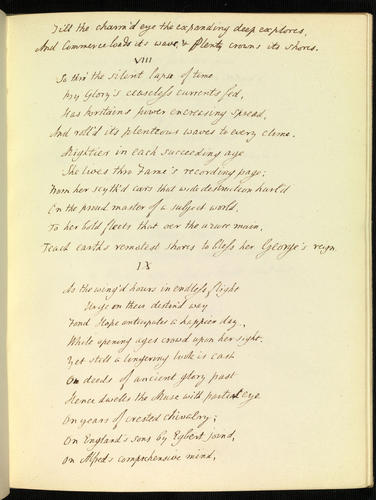 Till the charm'd eye the expanding deep explores,
And Commerce loads its wave, & Plenty crowns its shores.
VIII
So thro' the silent lapse of time
By Glory's ceaseless currents fed,
Has Britains power encreasing spread,
And roll'd its plenteous waves to every clime.
Mightier in each succeeding age
She lives thro Fame's recording page;
From her scyth'd cars that wide destruction hurl'd
On the proud master of a subject world,
To her bold fleets that oer the azure main,
Teach earths remotest shores to bless her George's reign.
IX
As the wing'd hours in endless flight
Urge on their destin'd way
Fond Hope anticipates a happier day,
While opening ages crowd upon her sight.
Yet still a lingering look is cast
On deeds of ancient glory past
Hence dwells the Muse with partial eye
On years of crested chivalry;
On England's sons by Egbert joind,
On Alfred's comprehensive mind,